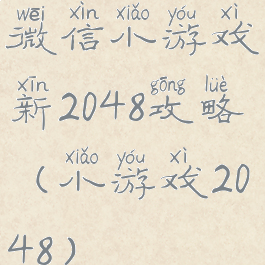 wēi xìn xiǎo yóu xì
微信小游戏
xīn gōng lüè
新2048攻略
xiǎo yóu xì
(小游戏20
48)